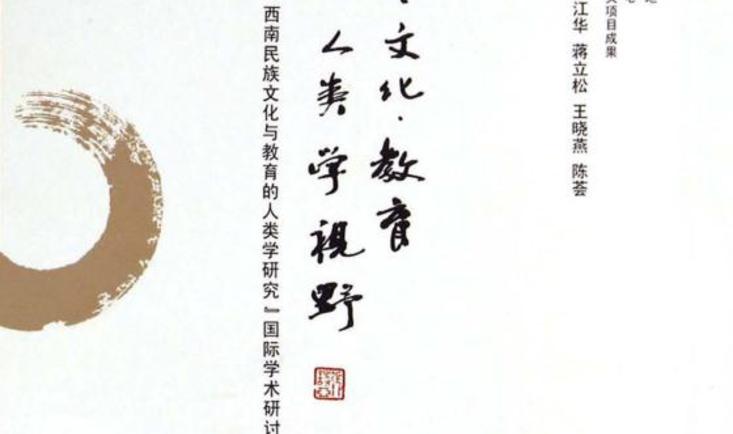 项目成果
江华 蒋立松 王晓燕 陈荟
·文化·教育
人类学视野
西南民族文化与教育的人类学研究』国际学术研讨